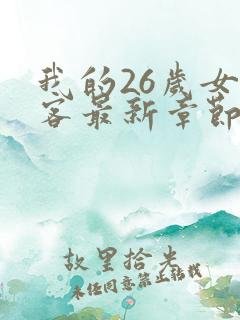 我的26歲女
客最新章節
故里拾光
未經同意禁止轉載